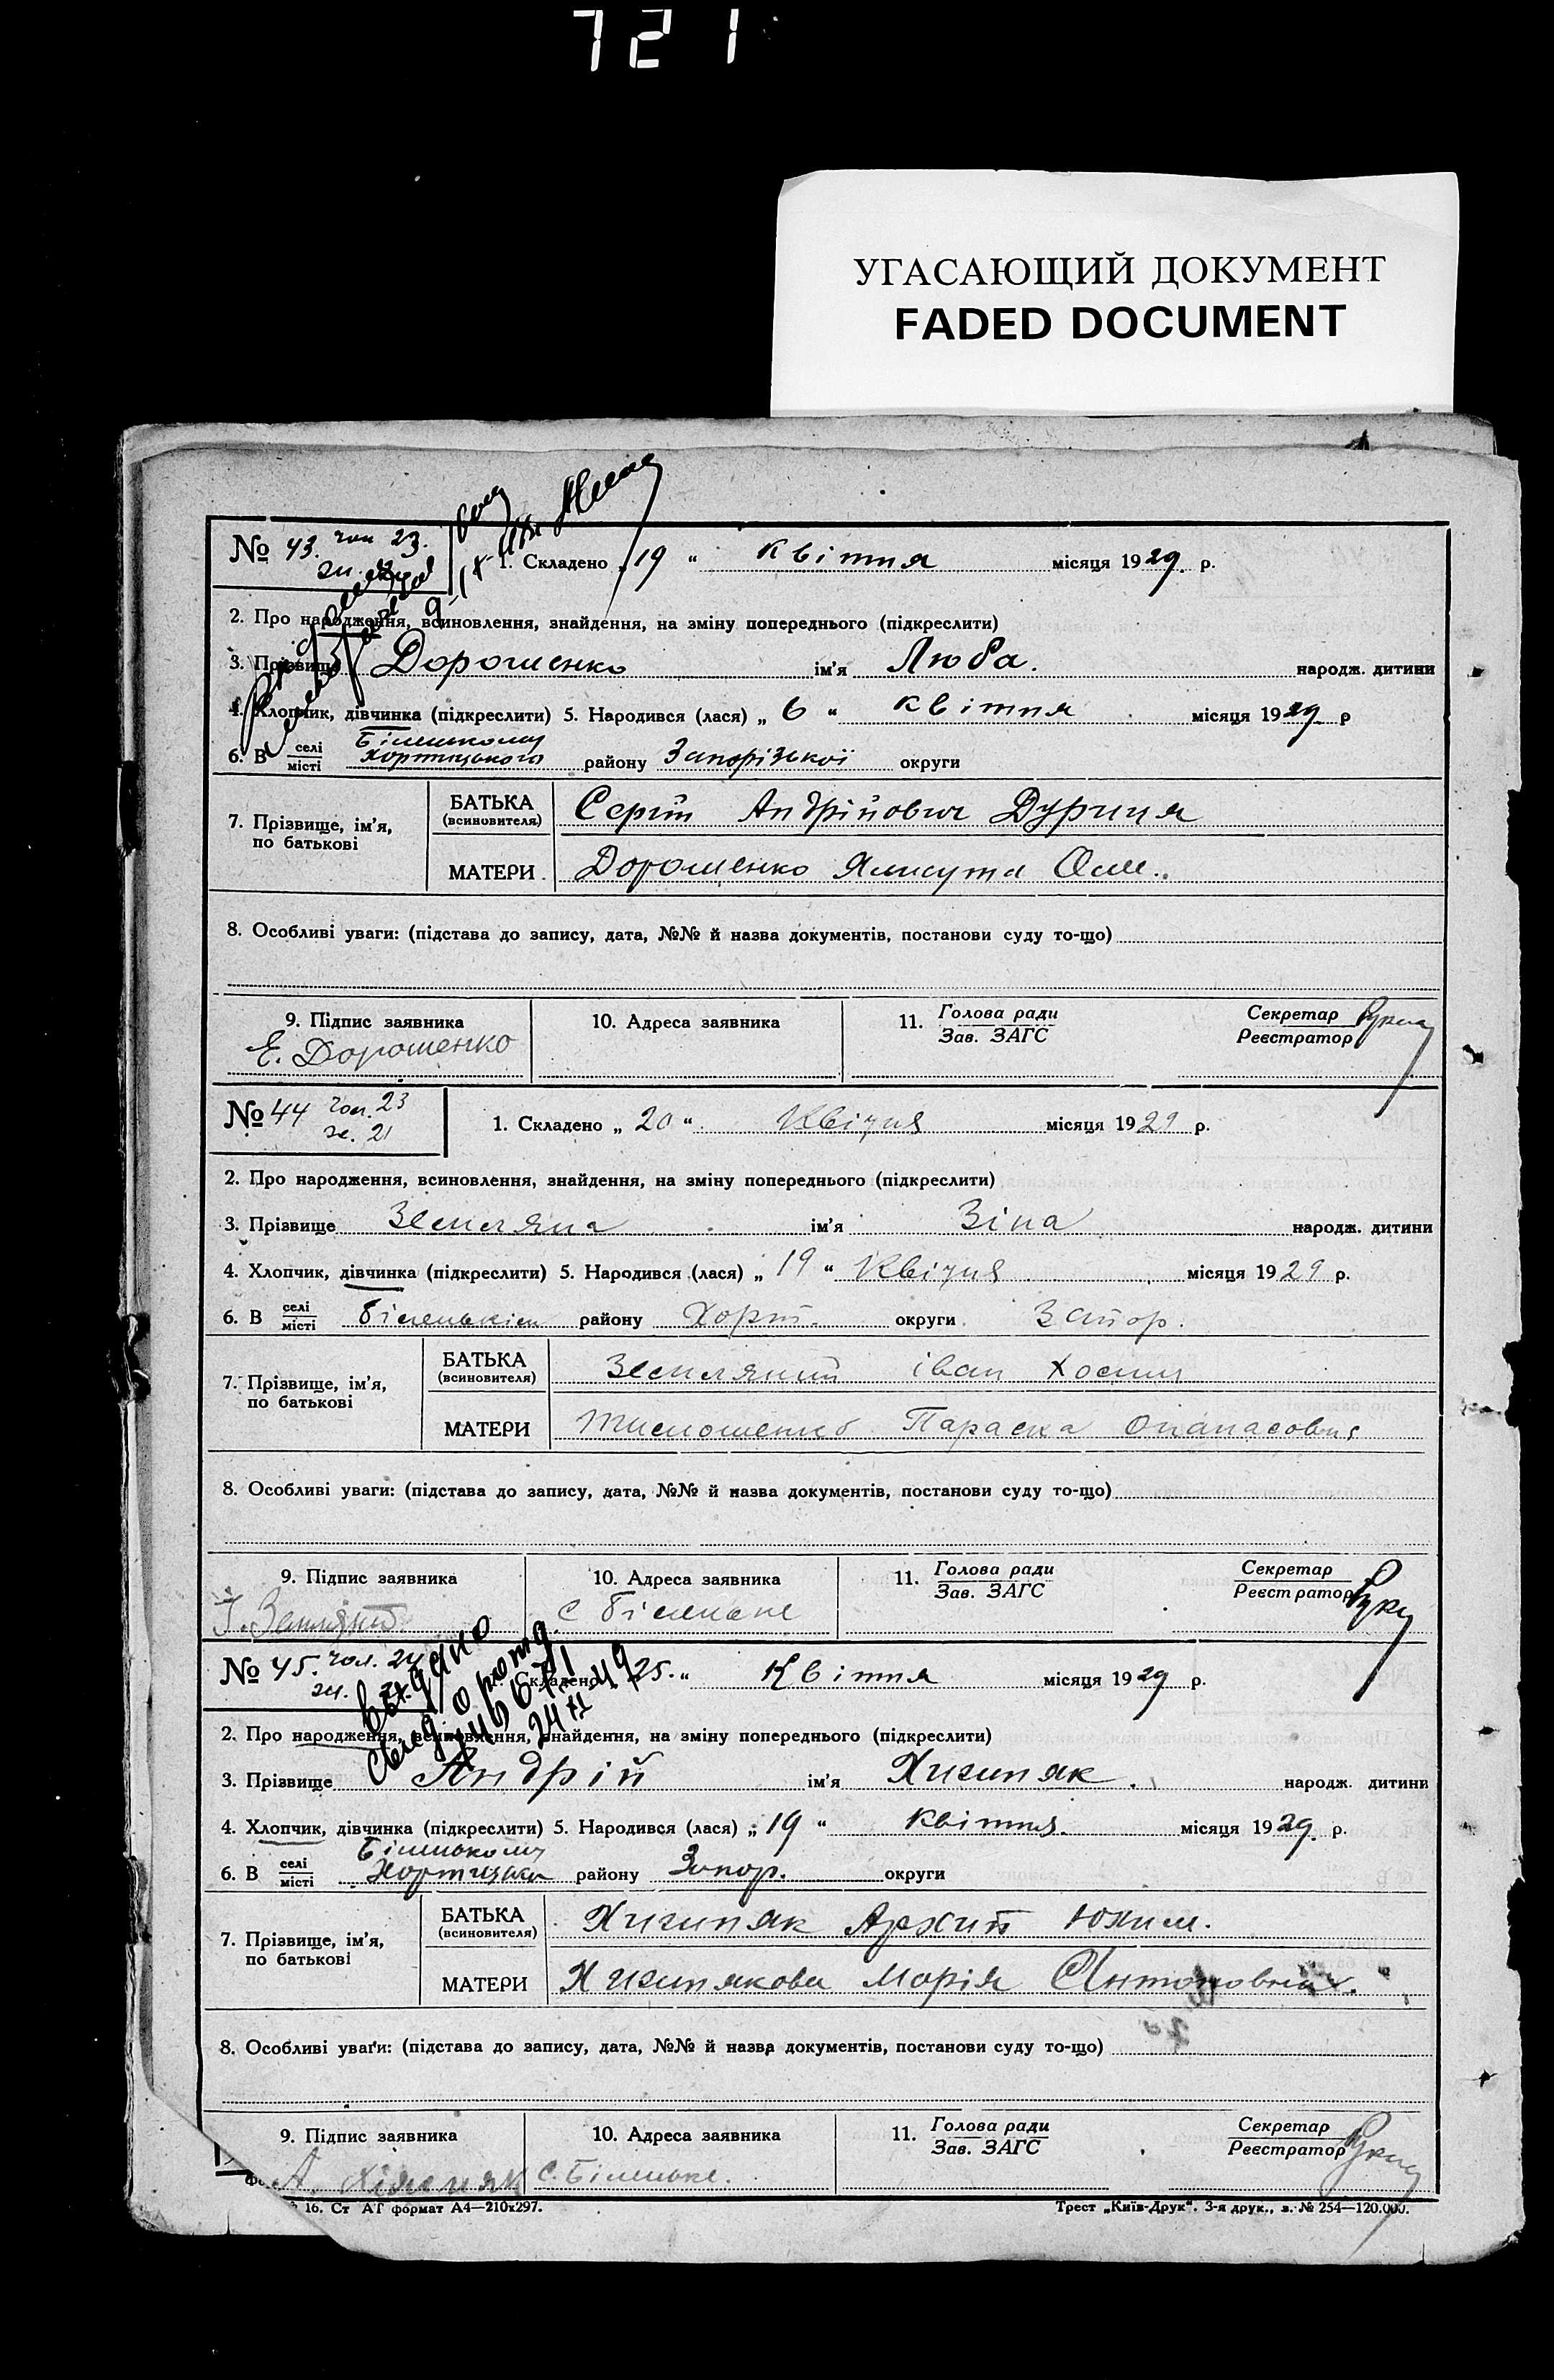 721
УГАСАЮЩИЙ ДОКУМЕНТ
FADED DOCUMENT
№ 43. чол 23.
1. Складено „19 “ квітня місяця 1929. р.
2. Про народження, всиновлення, знайдення, на зміну попереднього (підкреслити)
3. Прізвище Дорошенко ім'я Люба. народж. дитини
4. Хлопчик, дівчинка (підкреслити) 5. Народився (лася) „ 6 “ квітня місяця 1929 р
Біленькому
6. В селі місті Хортицького району Запорізької округи
7. Прізвище, ім'я, по батькові
БАТЬКА (всиновителя) Сергій Андрійович
МАТЕРИ Дорошенко
8. Особливі уваги: (підстава до запису, дата, №№ й назва документів, постанови суду то-що)
9. Підпис заявника
Е. Дорошенко
10. Адреса заявника
11. Голова ради Зав. ЗАГС
Секретар Реєстратор
№ 44 чол. 23
ж. 21
1. Складено „ 20 “ Квітня місяця 1929 р.
2. Про народження, всиновлення, знайдення, на зміну попереднього (підкреслити)
3. Прізвище Земляна ім'я Зіна народж. дитини
4. Хлопчик, дівчинка (підкреслити) 5. Народився (лася) „ 19 “ Квітня місяця 1929 р.
6. В селі місті Біленькім району Хорт. округи Запор.
7. Прізвище, ім'я, по батькові
БАТЬКА (всиновителя) Земляний іван
МАТЕРИ Параска
8. Особливі уваги: (підстава до запису, дата, №№ й назва документів, постанови суду то-що)
9. Підпис заявника
10. Адреса заявника
с Біленьке
11. Голова ради Зав. ЗАГС
Секретар Реєстратор
№ 45. чол. 24
1. Складено „25. “ Квітня місяця 1929 р.
2. Про народження, всиновлення, знайдення, на зміну попереднього (підкреслити)
3. Прізвище Андрій ім'я Хижняк. народж. дитини
4. Хлопчик, дівчинка (підкреслити) 5. Народився (лася) „ 19 “ квітня. місяця 1929. р.
Біленькому
6. В селі місті району Запор. округи
7. Прізвище, ім'я, по батькові
БАТЬКА (всиновителя) Хижняк Архип Юхим.
МАТЕРИ Хижнякова Марія
8. Особливі уваги: (підстава до запису, дата, №№ й назва документів, постанови суду то-що)
9. Підпис заявника
10. Адреса заявника
с. Біленьке.
11. Голова ради Зав. ЗАГС
Секретар Реєстратор
16. Ст АГ формат А4—210х297.
Трест „Київ-Друк“. 3-я друк., з. № 254—120.000.